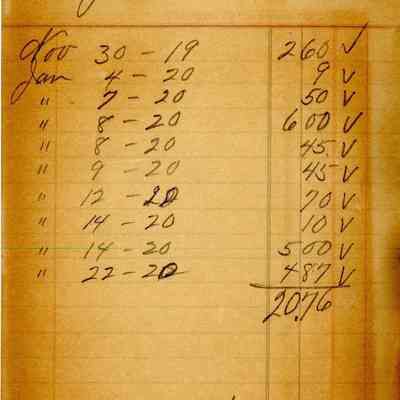 Nov 30 - 19 260 ✓
Jan 4 - 20 9 ✓
" 7 - 20 50 ✓
" 8 - 20 600 ✓
" 8 - 20 45 ✓
" 9 - 20 45 ✓
" 12 - 20 70 ✓
" 14 - 20 10 ✓
" 14 - 20 500 ✓
" 22 - 20 487 ✓
2076